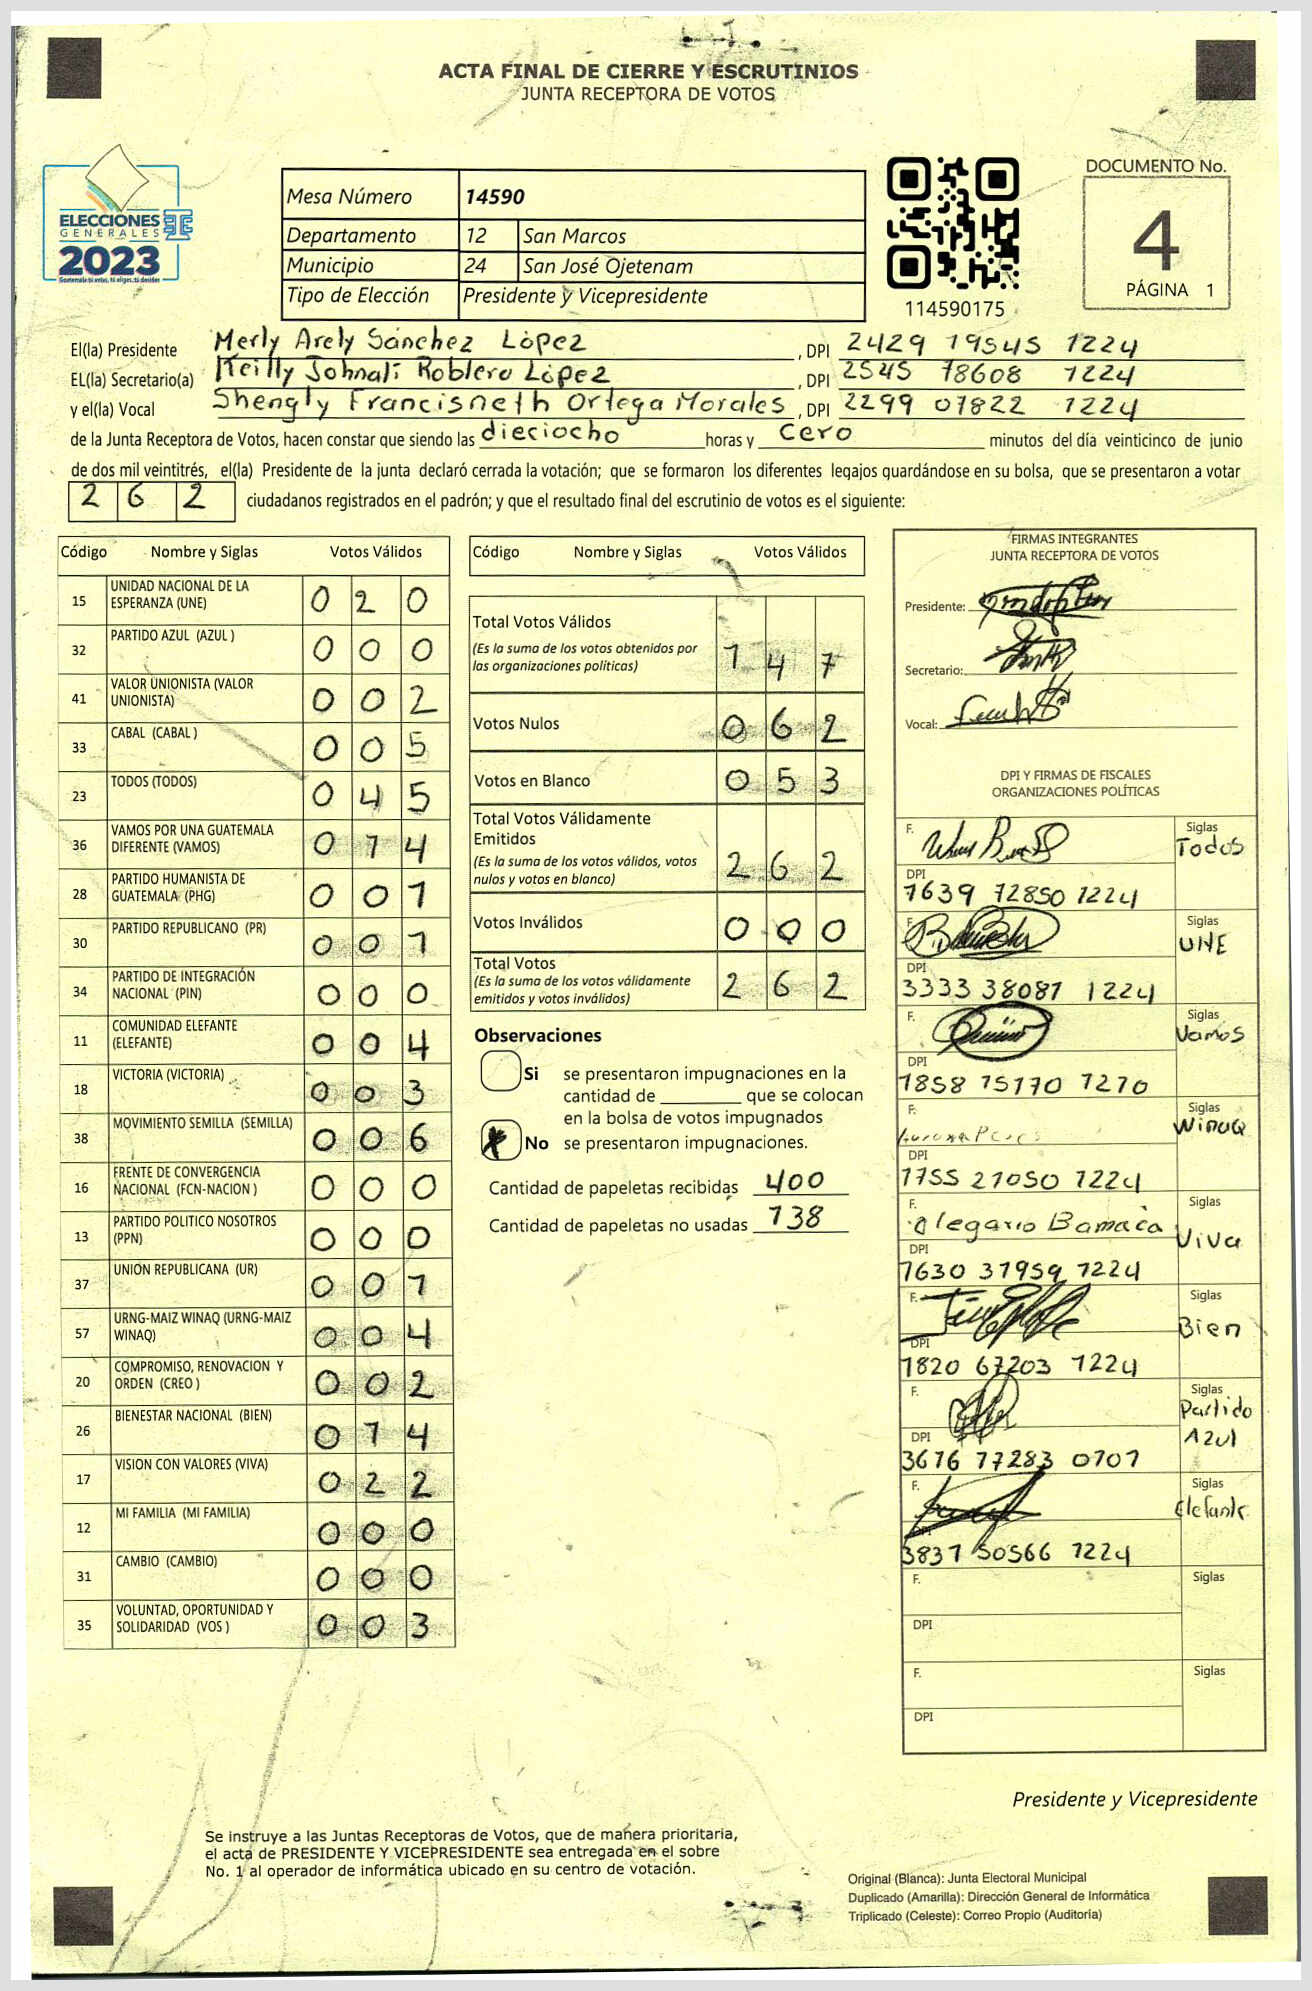 ACTA FINAL DE CIERRE Y ESCRUTINIOS
JUNTA RECEPTORA DE VOTOS
ELECCIONES
GENERALES
2023
Guatemala tú votas, tú eliges, tú decides
Mesa Número 14590
Departamento 12 San Marcos
Municipio 24 San José Ojetenam
Tipo de Elección Presidente y Vicepresidente
114590175
DOCUMENTO No.
4
PÁGINA 1
El(la) Presidente Merly Arely Sánchez López, DPI 2429 19545 1224
EL(la) Secretario(a) Keilly Johnali Roblero López, DPI 2545 78608 1224
y el(la) Vocal Shengly Francisneth Ortega Morales, DPI 2299 07822 1224
de la Junta Receptora de Votos, hacen constar que siendo las dieciocho horas y cero minutos del día veinticinco de junio
de dos mil veintitrés, el(la) Presidente de la junta declaró cerrada la votación; que se formaron los diferentes legajos guardándose en su bolsa, que se presentaron a votar
2 6 2 ciudadanos registrados en el padrón; y que el resultado final del escrutinio de votos es el siguiente:
Código Nombre y Siglas Votos Válidos
15 UNIDAD NACIONAL DE LA ESPERANZA (UNE) 0 2 0
32 PARTIDO AZUL (AZUL ) 0 0 0
41 VALOR UNIONISTA (VALOR UNIONISTA) 0 0 2
33 CABAL (CABAL ) 0 0 5
23 TODOS (TODOS) 0 4 5
36 VAMOS POR UNA GUATEMALA DIFERENTE (VAMOS) 0 1 4
28 PARTIDO HUMANISTA DE GUATEMALA (PHG) 0 0 1
30 PARTIDO REPUBLICANO (PR) 0 0 1
34 PARTIDO DE INTEGRACIÓN NACIONAL (PIN) 0 0 0
11 COMUNIDAD ELEFANTE (ELEFANTE) 0 0 4
18 VICTORIA (VICTORIA) 0 0 3
38 MOVIMIENTO SEMILLA (SEMILLA) 0 0 6
16 FRENTE DE CONVERGENCIA NACIONAL (FCN-NACION ) 0 0 0
13 PARTIDO POLITICO NOSOTROS (PPN) 0 0 0
37 UNION REPUBLICANA (UR) 0 0 1
57 URNG-MAIZ WINAQ (URNG-MAIZ WINAQ) 0 0 4
20 COMPROMISO, RENOVACION Y ORDEN (CREO ) 0 0 2
26 BIENESTAR NACIONAL (BIEN) 0 1 4
17 VISION CON VALORES (VIVA) 0 2 2
12 MI FAMILIA (MI FAMILIA) 0 0 0
31 CAMBIO (CAMBIO) 0 0 0
35 VOLUNTAD, OPORTUNIDAD Y SOLIDARIDAD (VOS ) 0 0 3
Código Nombre y Siglas Votos Válidos
Total Votos Válidos 1 4 7
(Es la suma de los votos obtenidos por
las organizaciones políticas)
Votos Nulos 0 6 2
Votos en Blanco 0 5 3
Total Votos Válidamente
Emitidos 2 6 2
(Es la suma de los votos válidos, votos
nulos y votos en blanco)
Votos Inválidos 0 0 0
Total Votos 2 6 2
(Es la suma de los votos válidamente
emitidos y votos inválidos)
Observaciones
Si se presentaron impugnaciones en la
cantidad de ________ que se colocan
en la bolsa de votos impugnados
No se presentaron impugnaciones.
Cantidad de papeletas recibidas 400
Cantidad de papeletas no usadas 138
FIRMAS INTEGRANTES
JUNTA RECEPTORA DE VOTOS
Presidente:
Secretario:
Vocal:
DPI Y FIRMAS DE FISCALES
ORGANIZACIONES POLÍTICAS
F. Siglas
Todos
DPI
1639 72850 1224
F. Siglas
UNE
DPI
3333 38081 1224
F. Siglas
Vamos
DPI
1858 15170 1210
F. Siglas
Winaq
DPI
1755 21050 1224
F. Siglas
Olegario Bamaca Viva
DPI
1630 31959 1224
F. Siglas
Bien
DPI
1820 67203 1224
F. Siglas
Partido
Azul
DPI
3676 77283 0101
F. Siglas
Elefante
DPI
3831 50566 1224
F. Siglas
DPI
F. Siglas
DPI
Presidente y Vicepresidente
Se instruye a las Juntas Receptoras de Votos, que de manera prioritaria,
el acta de PRESIDENTE Y VICEPRESIDENTE sea entregada en el sobre
No. 1 al operador de informática ubicado en su centro de votación.
Original (Blanca): Junta Electoral Municipal
Duplicado (Amarilla): Dirección General de Informática
Triplicado (Celeste): Correo Propio (Auditoria)